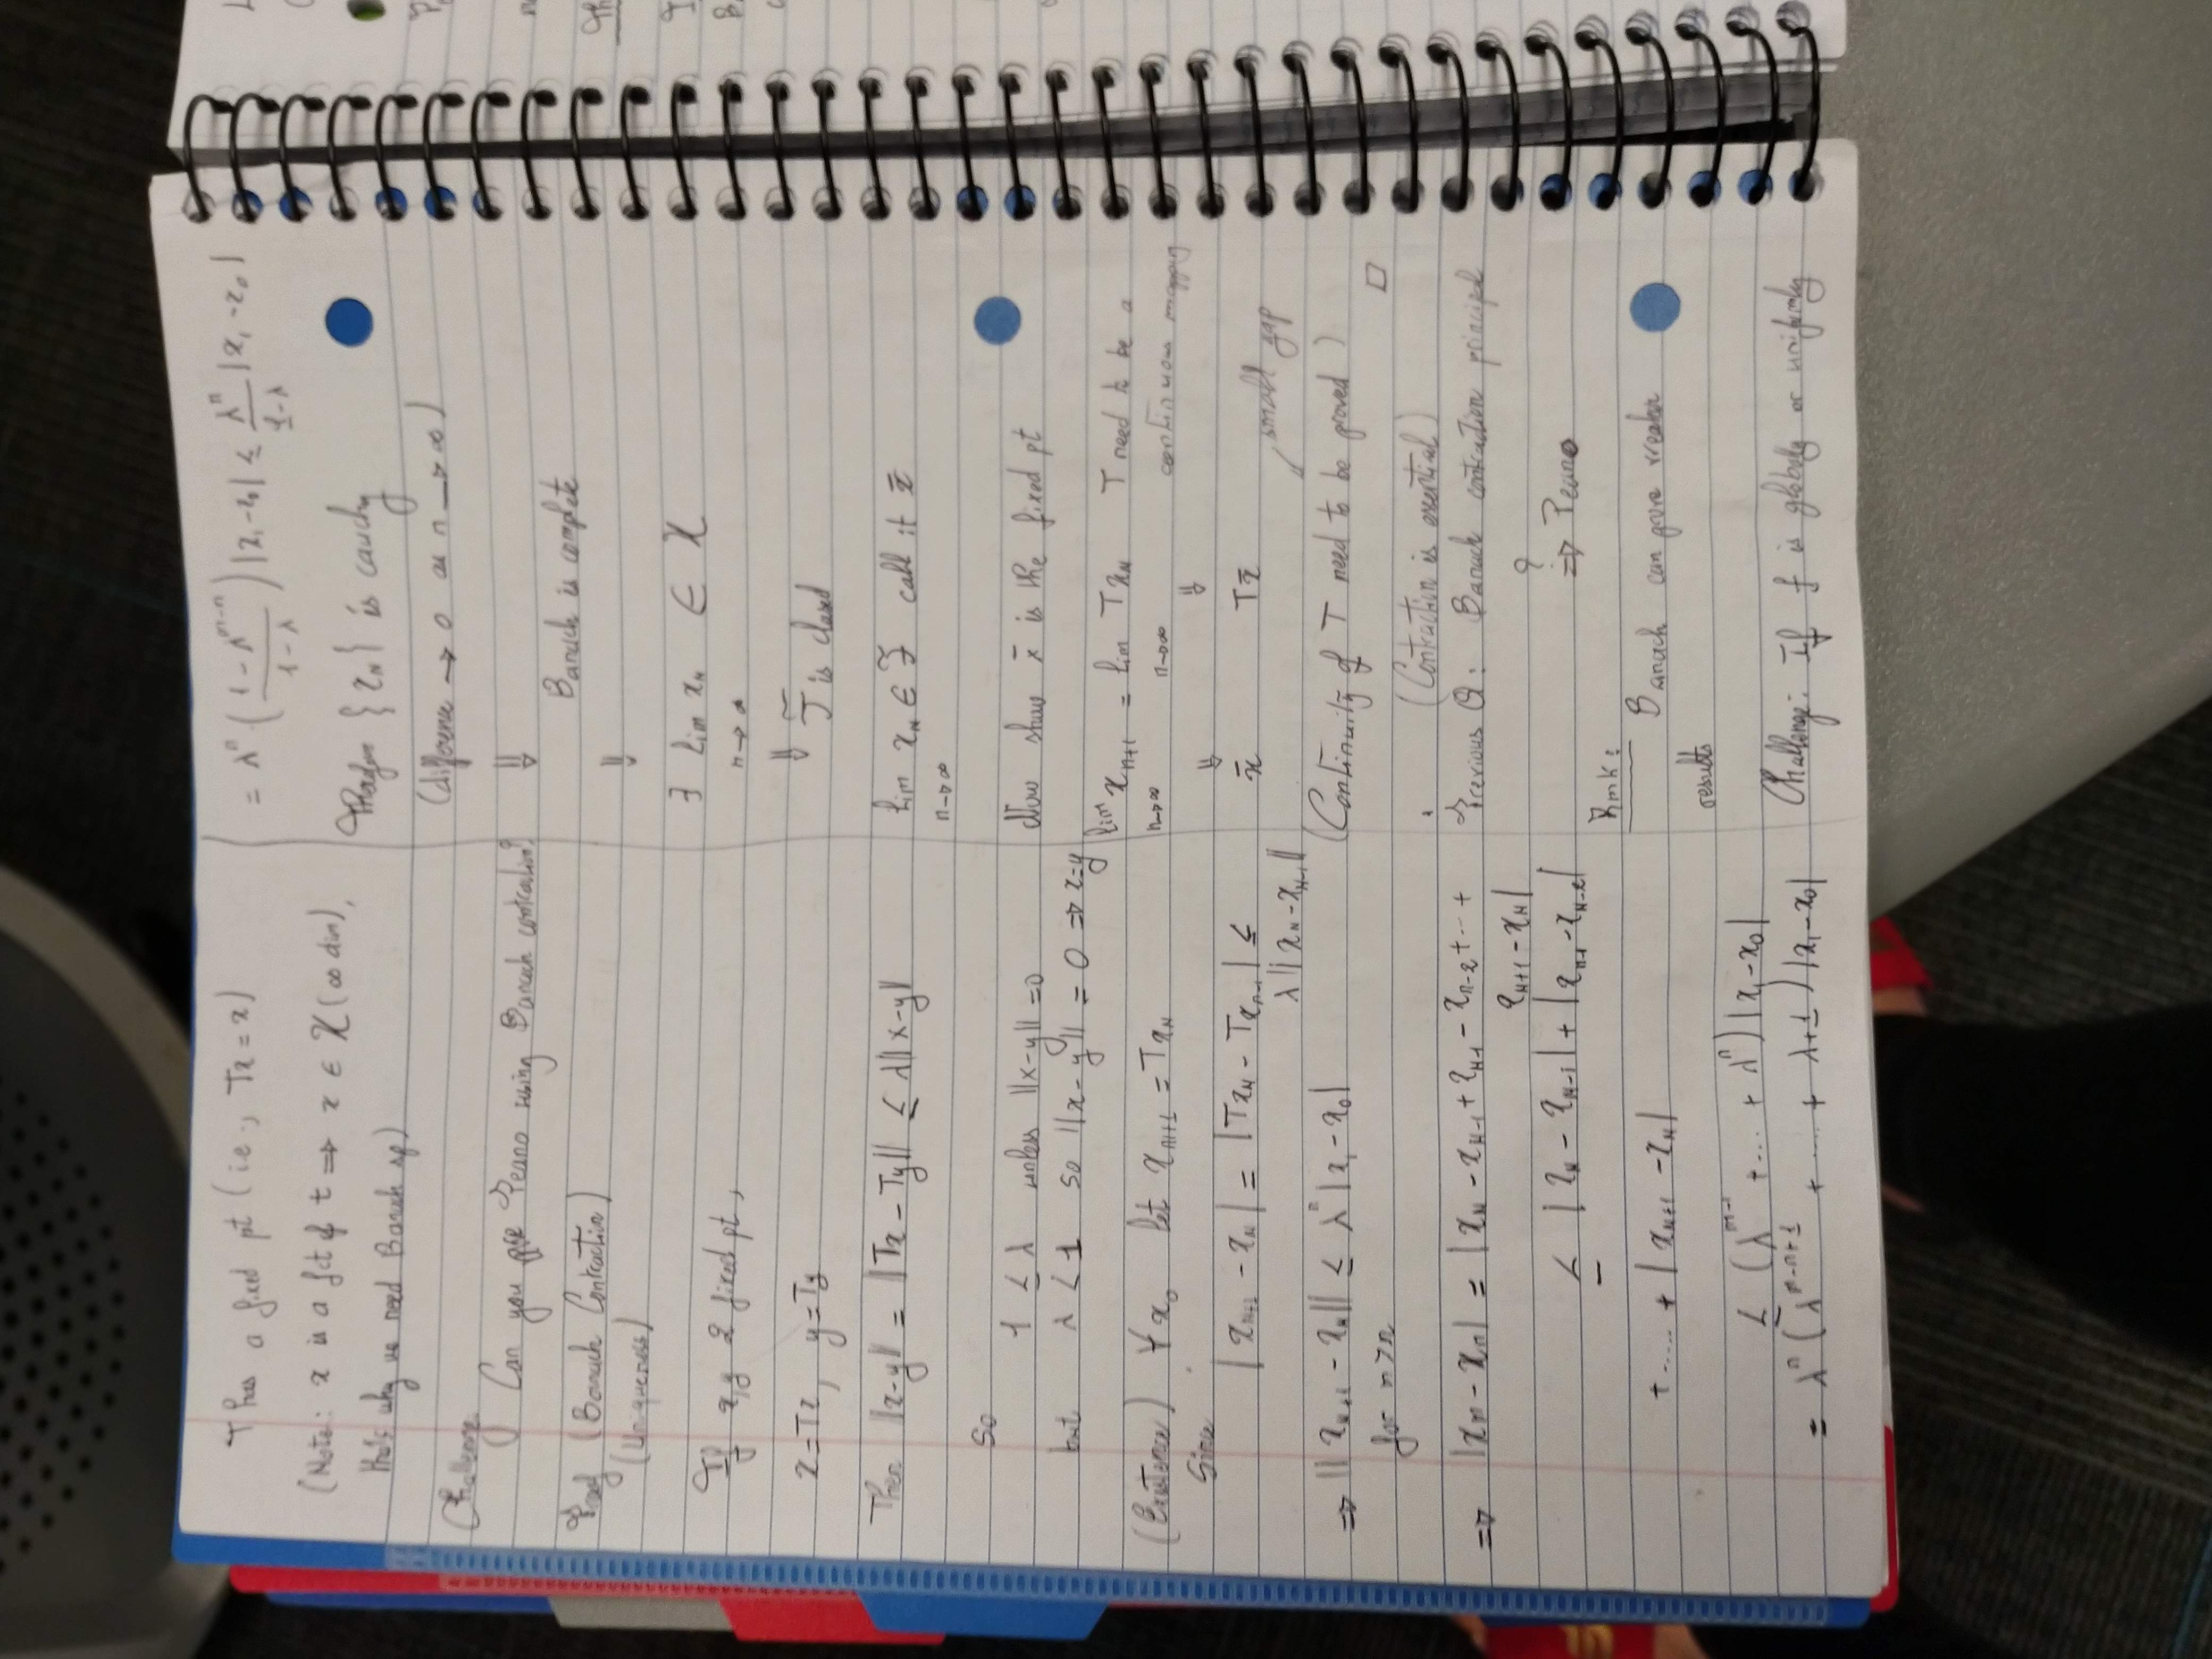 T has a fixed pt (i.e., Tx = x)
(Note: x is a fct of t ⇒ x ∈ X (∞ dim),
that's why we need Banach sp)
Challenge
Can you prove Peano using Banach contraction?
Proof (Banach Contraction)
(Uniqueness)
If x,y 2 fixed pt,
x=Tx, y=Ty
Then ||x-y|| = ||Tx - Ty|| ≤ λ||x-y||
So
1 ≤ λ unless ||x-y|| =0
but λ < 1 so ||x-y|| = 0 ⇒ x=y
(Existence) ∀ x₀ let xₙ₊₁ = Txₙ
Since
|xₙ₊₁ - xₙ| = |Txₙ - Txₙ₋₁| ≤
λ||xₙ - xₙ₋₁||
⇒ ||xₙ₊₁ - xₙ|| ≤ λⁿ |x₁ - x₀|
for m>n
⇒ |xₘ - xₙ| = |xₘ - xₘ₋₁ + xₘ₋₁ - xₘ₋₂ + ... +
xₙ₊₁ - xₙ|
≤ |xₘ - xₘ₋₁| + |xₘ₋₁ - xₘ₋₂|
+ ..... + |xₙ₊₁ - xₙ|
≤ (λᵐ⁻¹ + ... + λⁿ) |x₁ - x₀|
= λⁿ (λᵐ⁻ⁿ⁺¹ + .... + λ+1) |x₁ - x₀|
= λⁿ ((1 - λᵐ⁻ⁿ)/(1 - λ)) |x₁ - x₀| ≤ λⁿ/(1-λ) |x₁ - x₀|
Therefore {xₙ} is cauchy
(difference → 0 as n → ∞)
⇓
Banach is complete
⇓
∃ lim xₙ ∈ X
n→∞
⇓ F̃ is closed
lim xₙ ∈ F̃ call it x̄
n→∞
Now show x̄ is the fixed pt
lim xₙ₊₁ = lim Txₙ T need to be a
n→∞ n→∞ continuous mapping
⇓ ⇓
x̄ Tx̄
small gap
(Continuity of T need to be proved)
□
(Contraction is essential)
Previous Q: Banach contraction principal
?
⇒ Peano
Rmk:
Banach can prove weaker
results
Challenge: If f is globally or uniformly